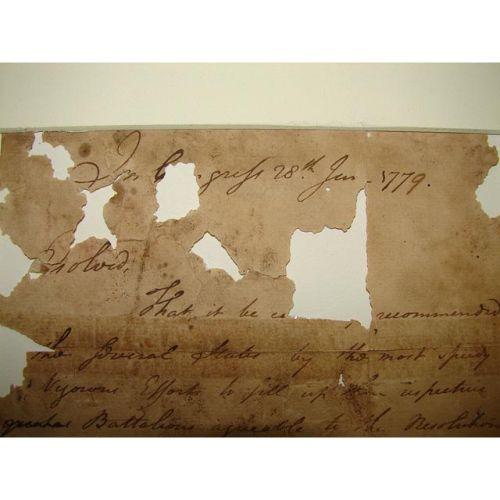 In C ngress 28th Jan. 1779.
esolved,
That it be recommended
the several States by the most speedy
Vigorous Efforts to fill up their respective
Battalions agreeable to the Resolution